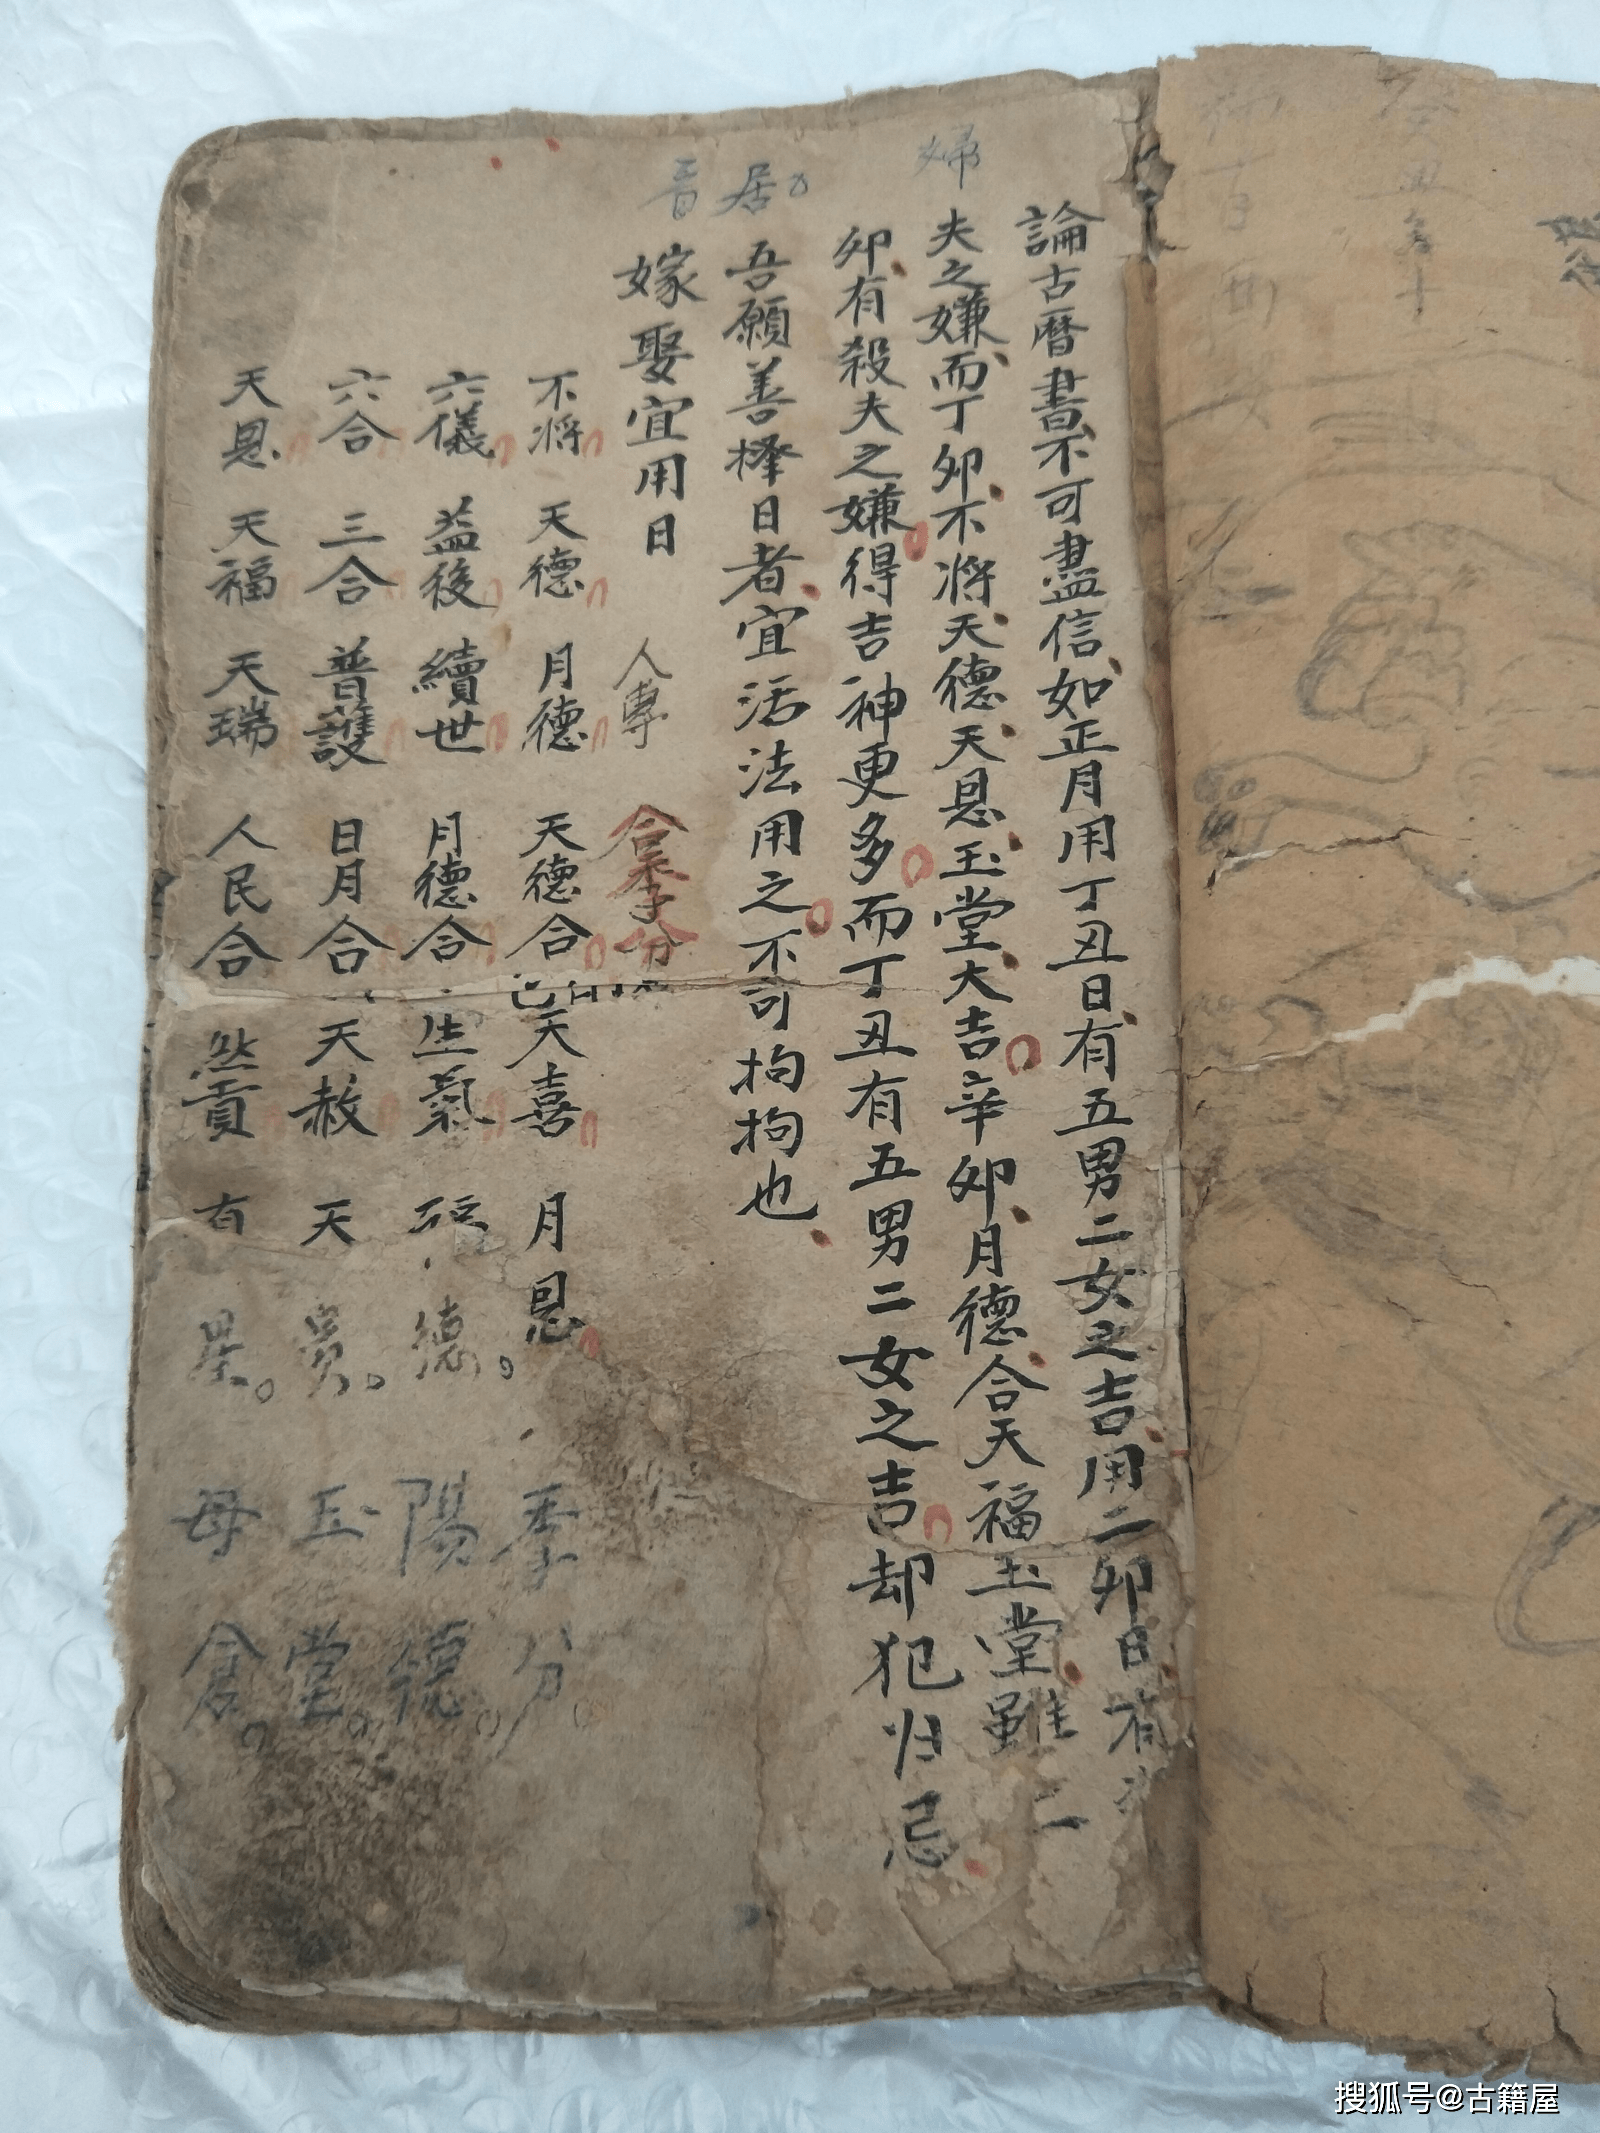 婦
居
音
論古曆書不可盡信如正月用丁丑日有五男二女之吉用二卯日有
夫之嫌而丁卯不將天德天恩玉堂大吉辛卯月德合天福玉堂雖二
卯有殺夫之嫌得吉神更多而丁丑有五男二女之吉却犯归忌
吾願善擇日者宜活法用之不可拘拘也
嫁娶宜用日 人專 合季分
不將 天德 月德 天德合 天喜 月恩 季分
六儀 益後 續世 月德合 生氣 德 陽德
六合 三合 普護 日月合 天赦 天貴 玉堂
天恩 天福 天瑞 人民合 母倉
搜狐号@古籍屋